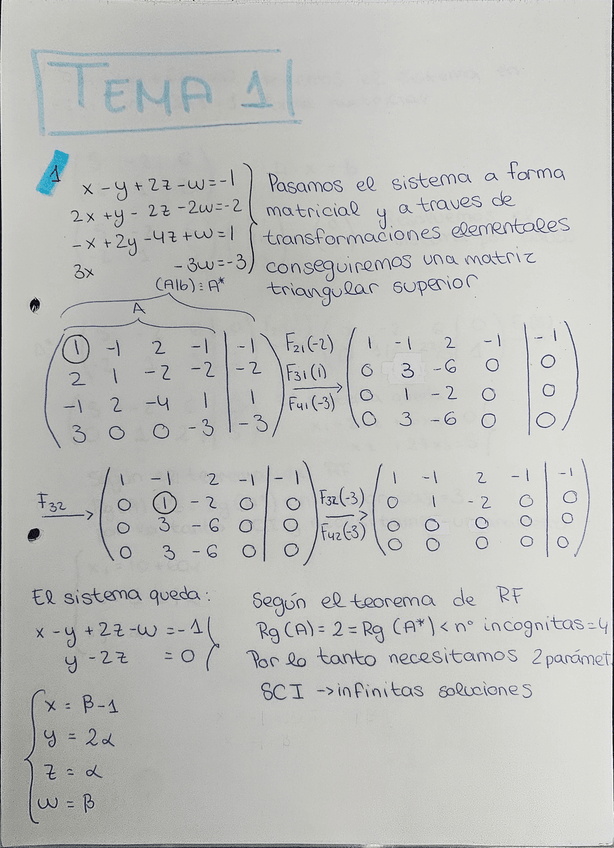 TEMA 1
1
x - y + 2z - w = -1
2x + y - 2z - 2w = -2
-x + 2y - 4z + w = 1
3x - 3w = -3
Pasamos el sistema a forma
matricial y a traves de
transformaciones elementales
conseguiremos una matriz
triangular superior
(A|b) ≡ A*
A
1 -1 2 -1 | -1
2 1 -2 -2 | -2
-1 2 -4 1 | 1
3 0 0 -3 | -3
F21(-2)
F31(1)
F41(-3)
1 -1 2 -1 | -1
0 3 -6 0 | 0
0 1 -2 0 | 0
0 3 -6 0 | 0
F32
1 -1 2 -1 | -1
0 1 -2 0 | 0
0 3 -6 0 | 0
0 3 -6 0 | 0
F32(-3)
F42(-3)
1 -1 2 -1 | -1
0 1 -2 0 | 0
0 0 0 0 | 0
0 0 0 0 | 0
El sistema queda:
x - y + 2z - w = -1
y - 2z = 0
Según el teorema de RF
Rg(A) = 2 = Rg(A*) < nº incognitas = 4
Por lo tanto necesitamos 2 parámet.
SCI → infinitas soluciones
x = β - 1
y = 2α
z = α
w = β